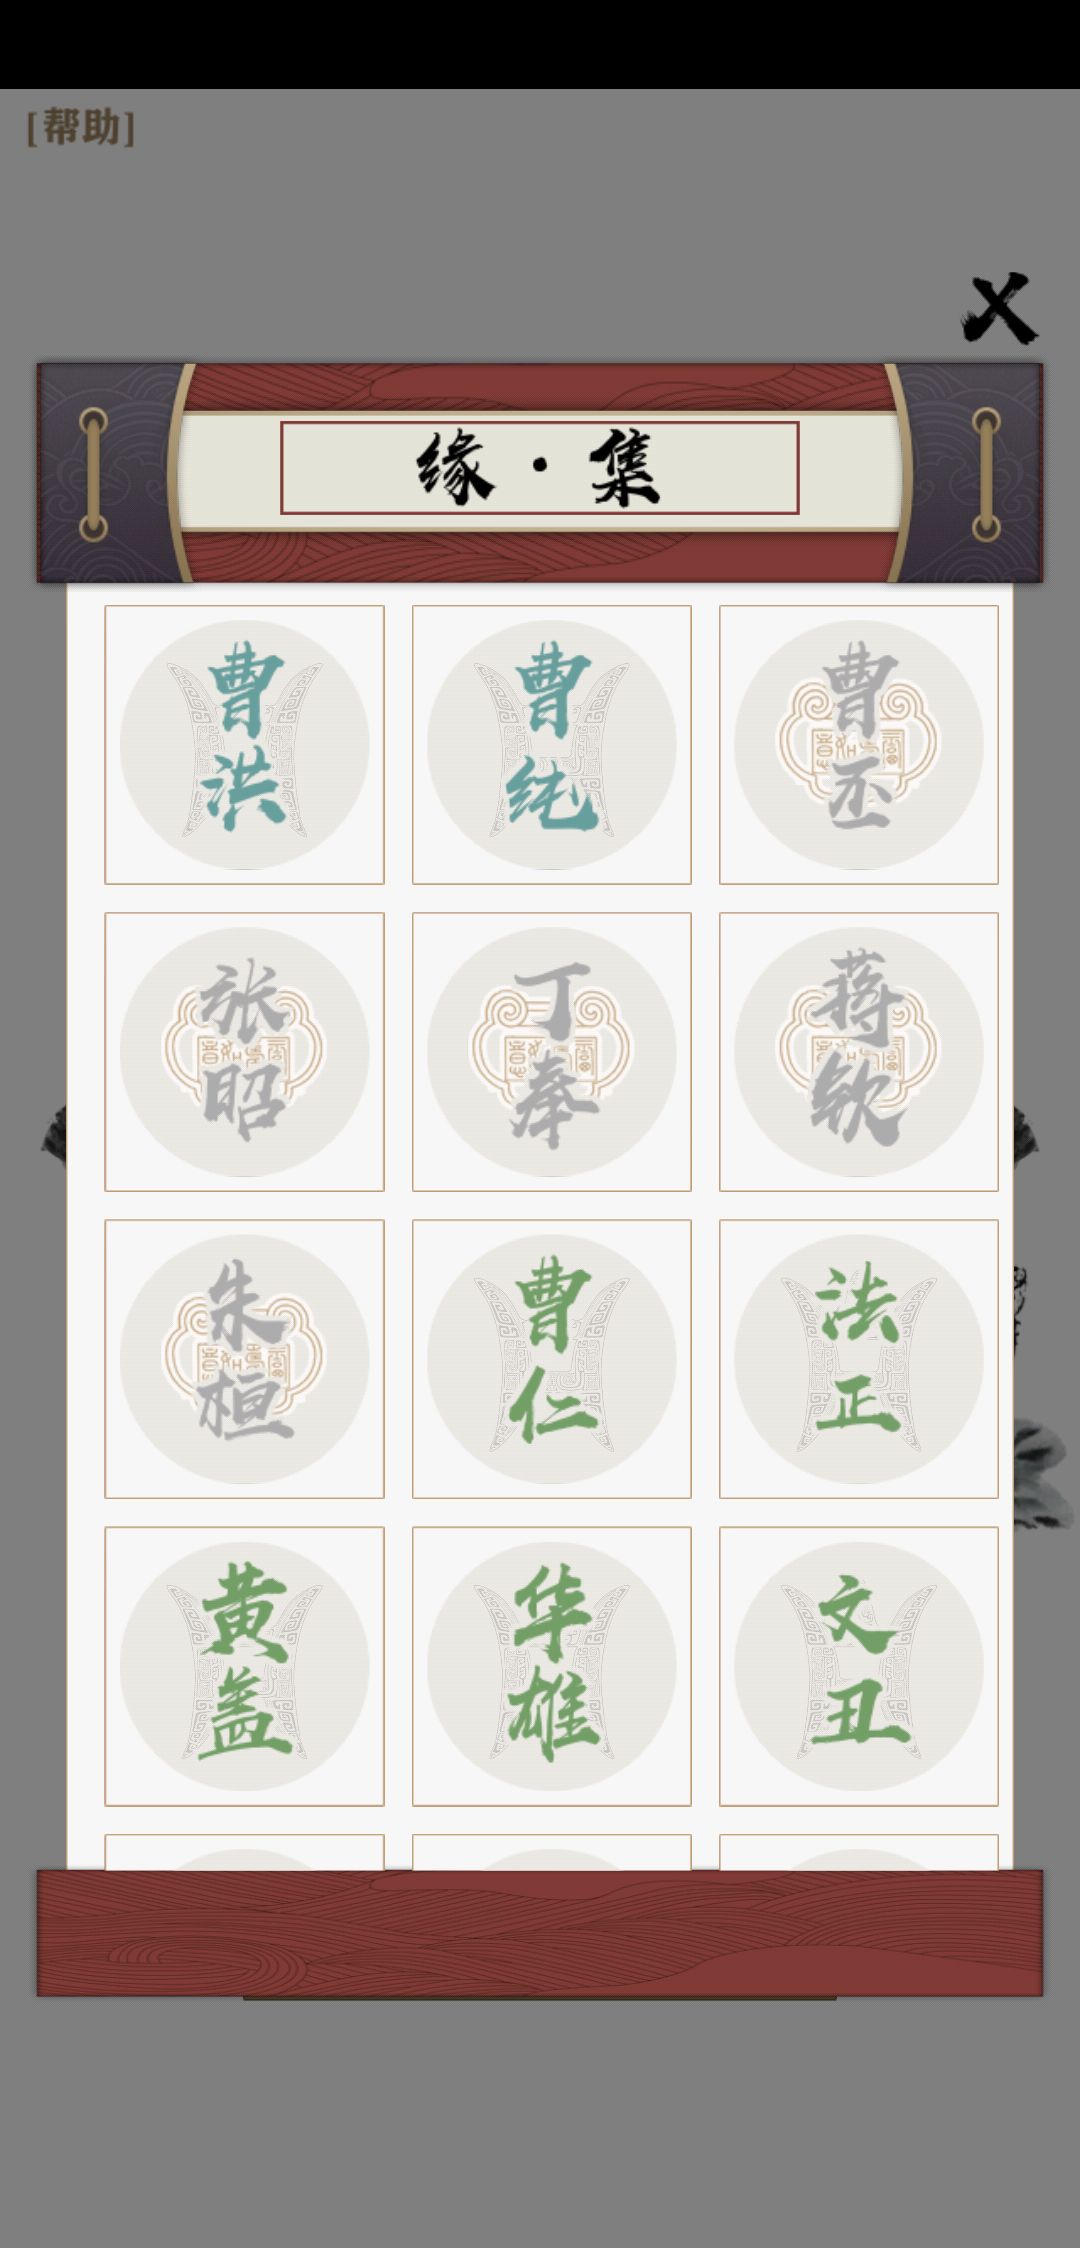 [帮助]
缘·集
曹洪
曹纯
曹丕
张昭
丁奉
蒋钦
朱桓
曹仁
法正
黄盖
华雄
文丑